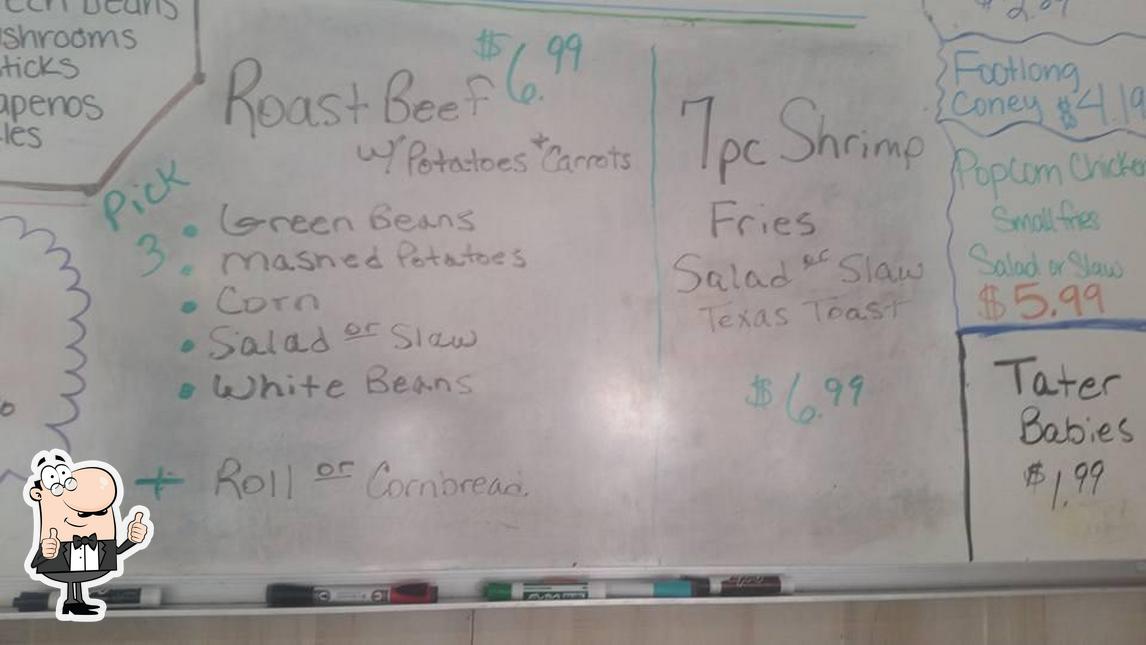 Beans
ticks
Roast Beef $6.99
w/ Potatoes + Carrots
Pick
3.
• Green Beans
• Mashed Potatoes
• Corn
• Salad or Slaw
• White Beans
+ Roll or Cornbread.
7pc Shrimp
Fries
Salad or Slaw
Texas Toast
$6.99
Footlong
Coney $4.19
Popcorn Chicken
Small fries
Salad or Slaw
$5.99
Tater
Babies
$1.99